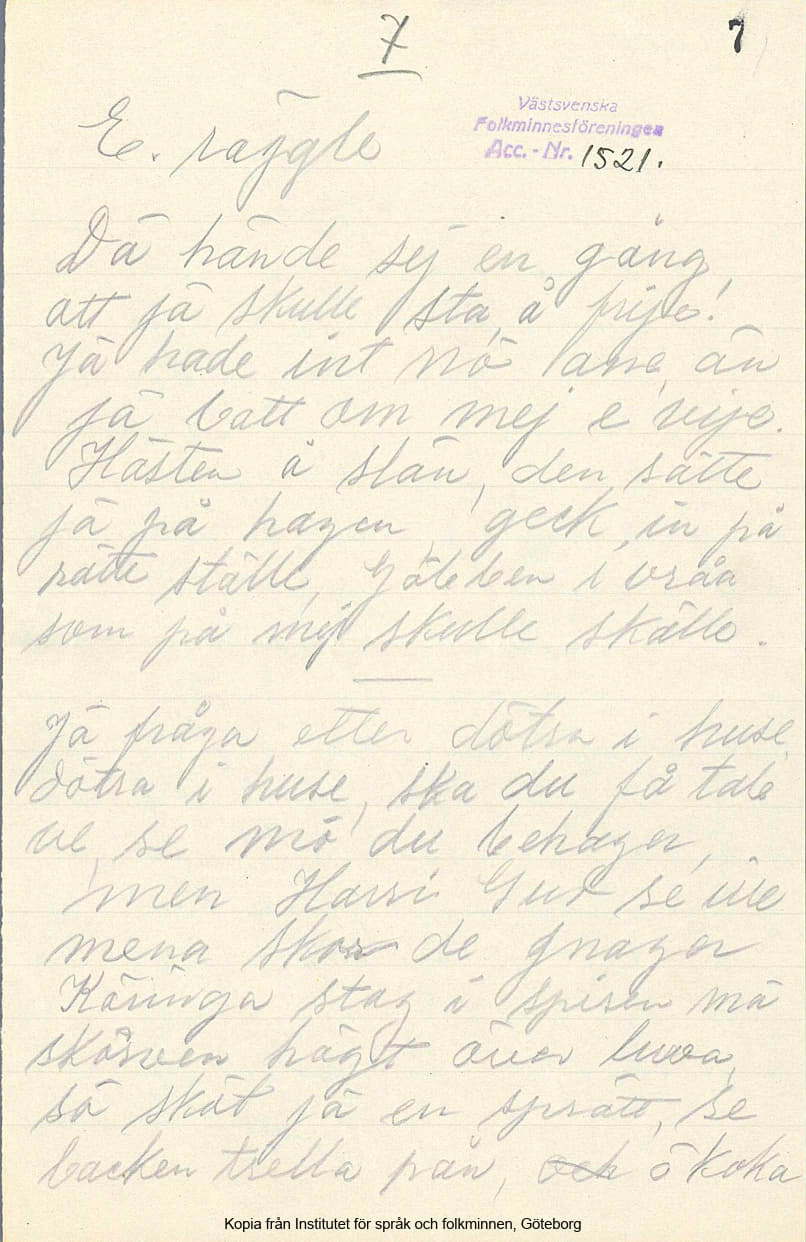 7
7
E. räggle
Västsvenska
Folkminnesföreningen
Acc. - Nr. 1521.
Dä hände sej en gång,
att jä skulle sta å frije!
Jä hade int nö ane än
jä batt om mej e vije.
Hästen å slän, den sätte
jä på hagen, geck in på
rätte ställe, i vråa
som på mej skulle skälle.
Jä fråga etter dötra i huse,
dötra i huse, ska du få tale
ve, se mö du behager,
men Harri Gud se
mena skor de gnager
Käringa stog i spisen mä
skörven högt över luva,
så sköt jä en sprätt, se
backen trella pån, och ö koka
Kopia från Institutet för språk och folkminnen, Göteborg